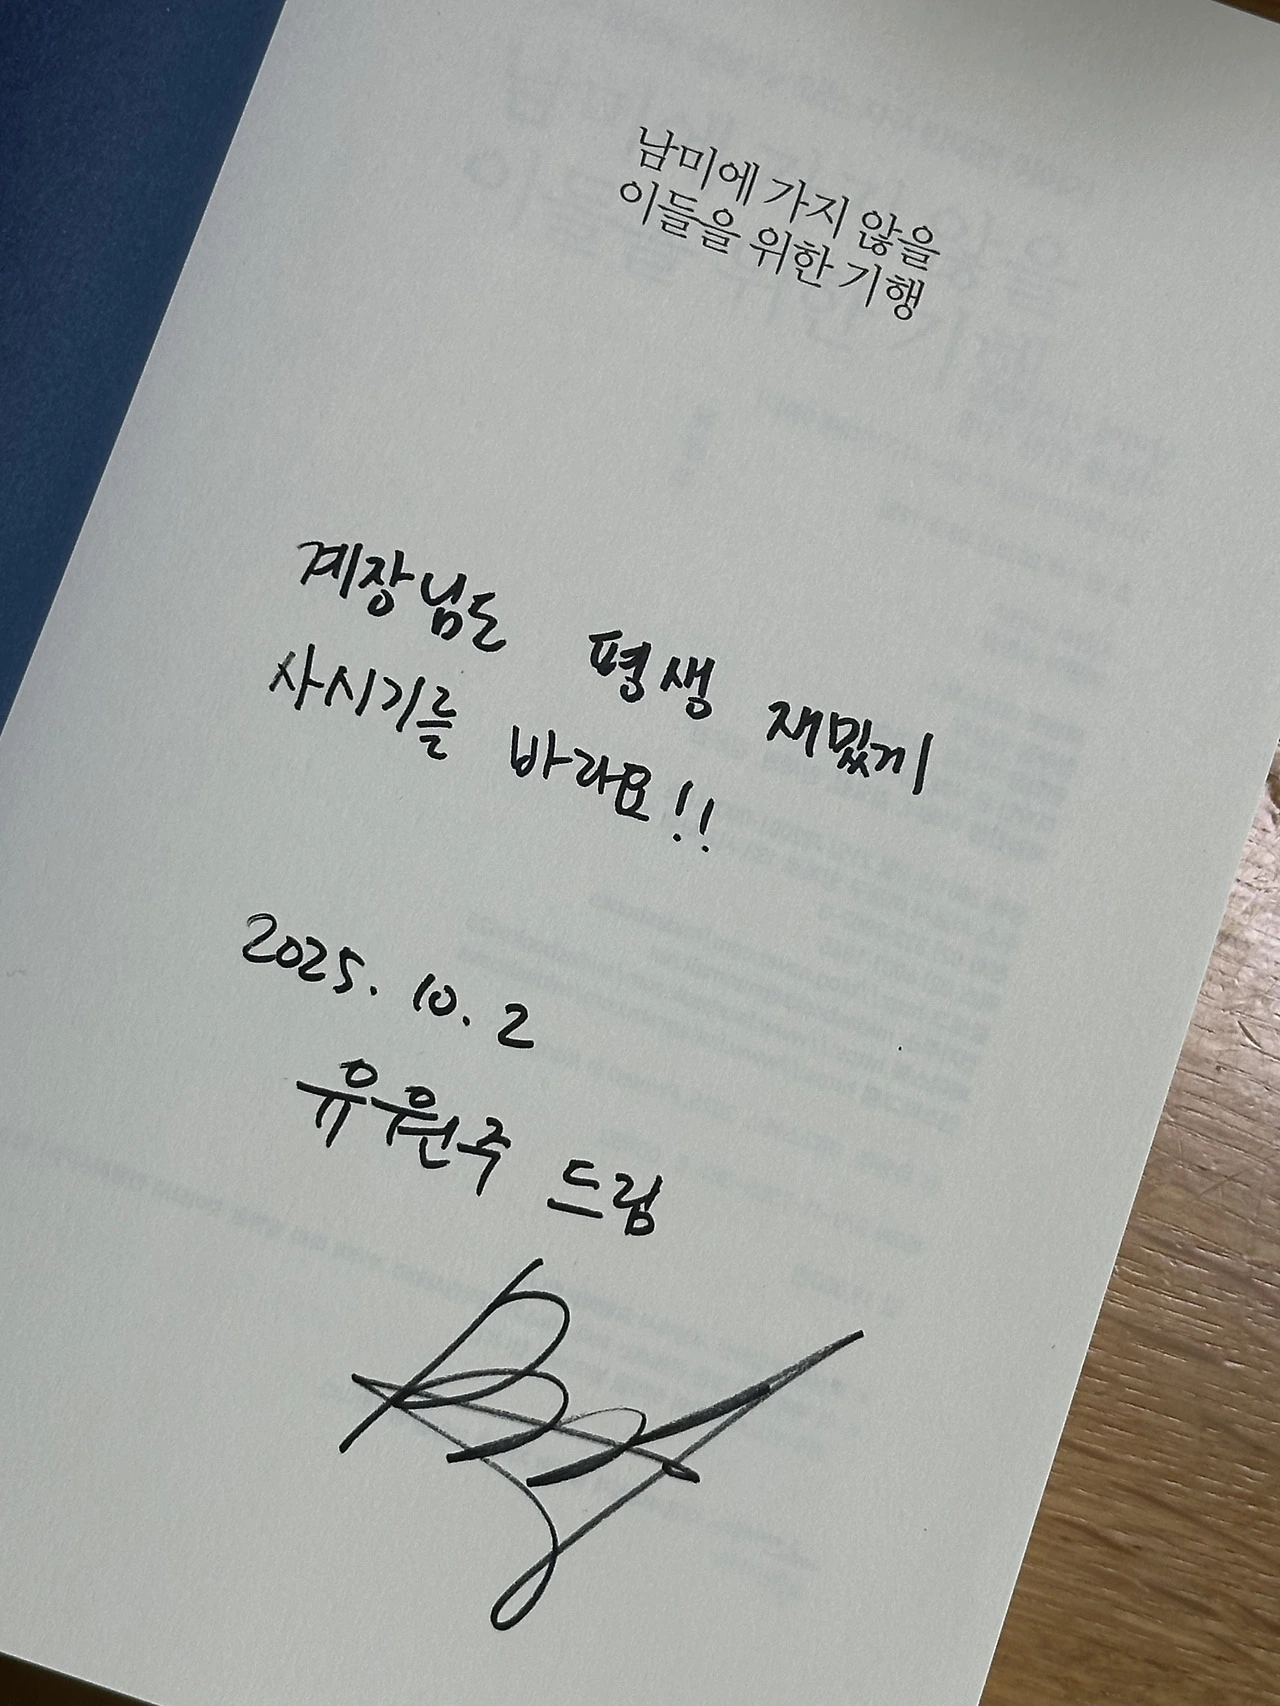 남미에 가지 않을
이들을 위한 기행
계장님도 평생 재밌게
사시기를 바라요!!
2025. 10. 2
유원주 드림